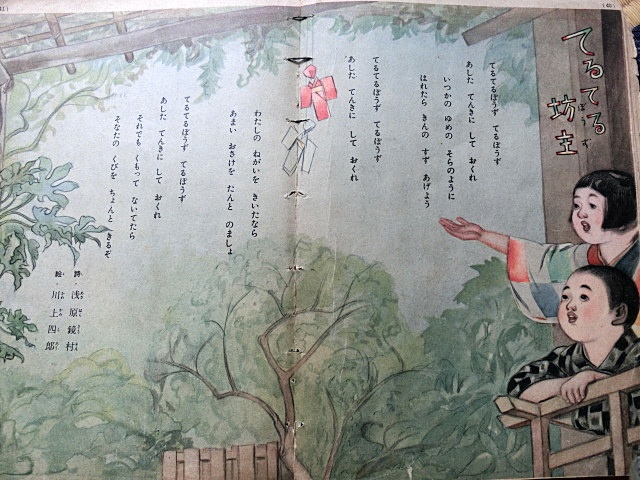 てるてる坊主
てるてるぼうず てるぼうず
あした てんきに して おくれ
いつかの ゆめの そらのように
はれたら きんの すず あげよう
てるてるぼうず てるぼうず
あした てんきに して おくれ
わたしの ねがいを きいたなら
あまい おさけを たんと のましょ
てるてるぼうず てるぼうず
あした てんきに して おくれ
それでも くもって ないてたら
そなたの くびを ちょんと きるぞ
詩・浅原鏡村
絵・川上四郎